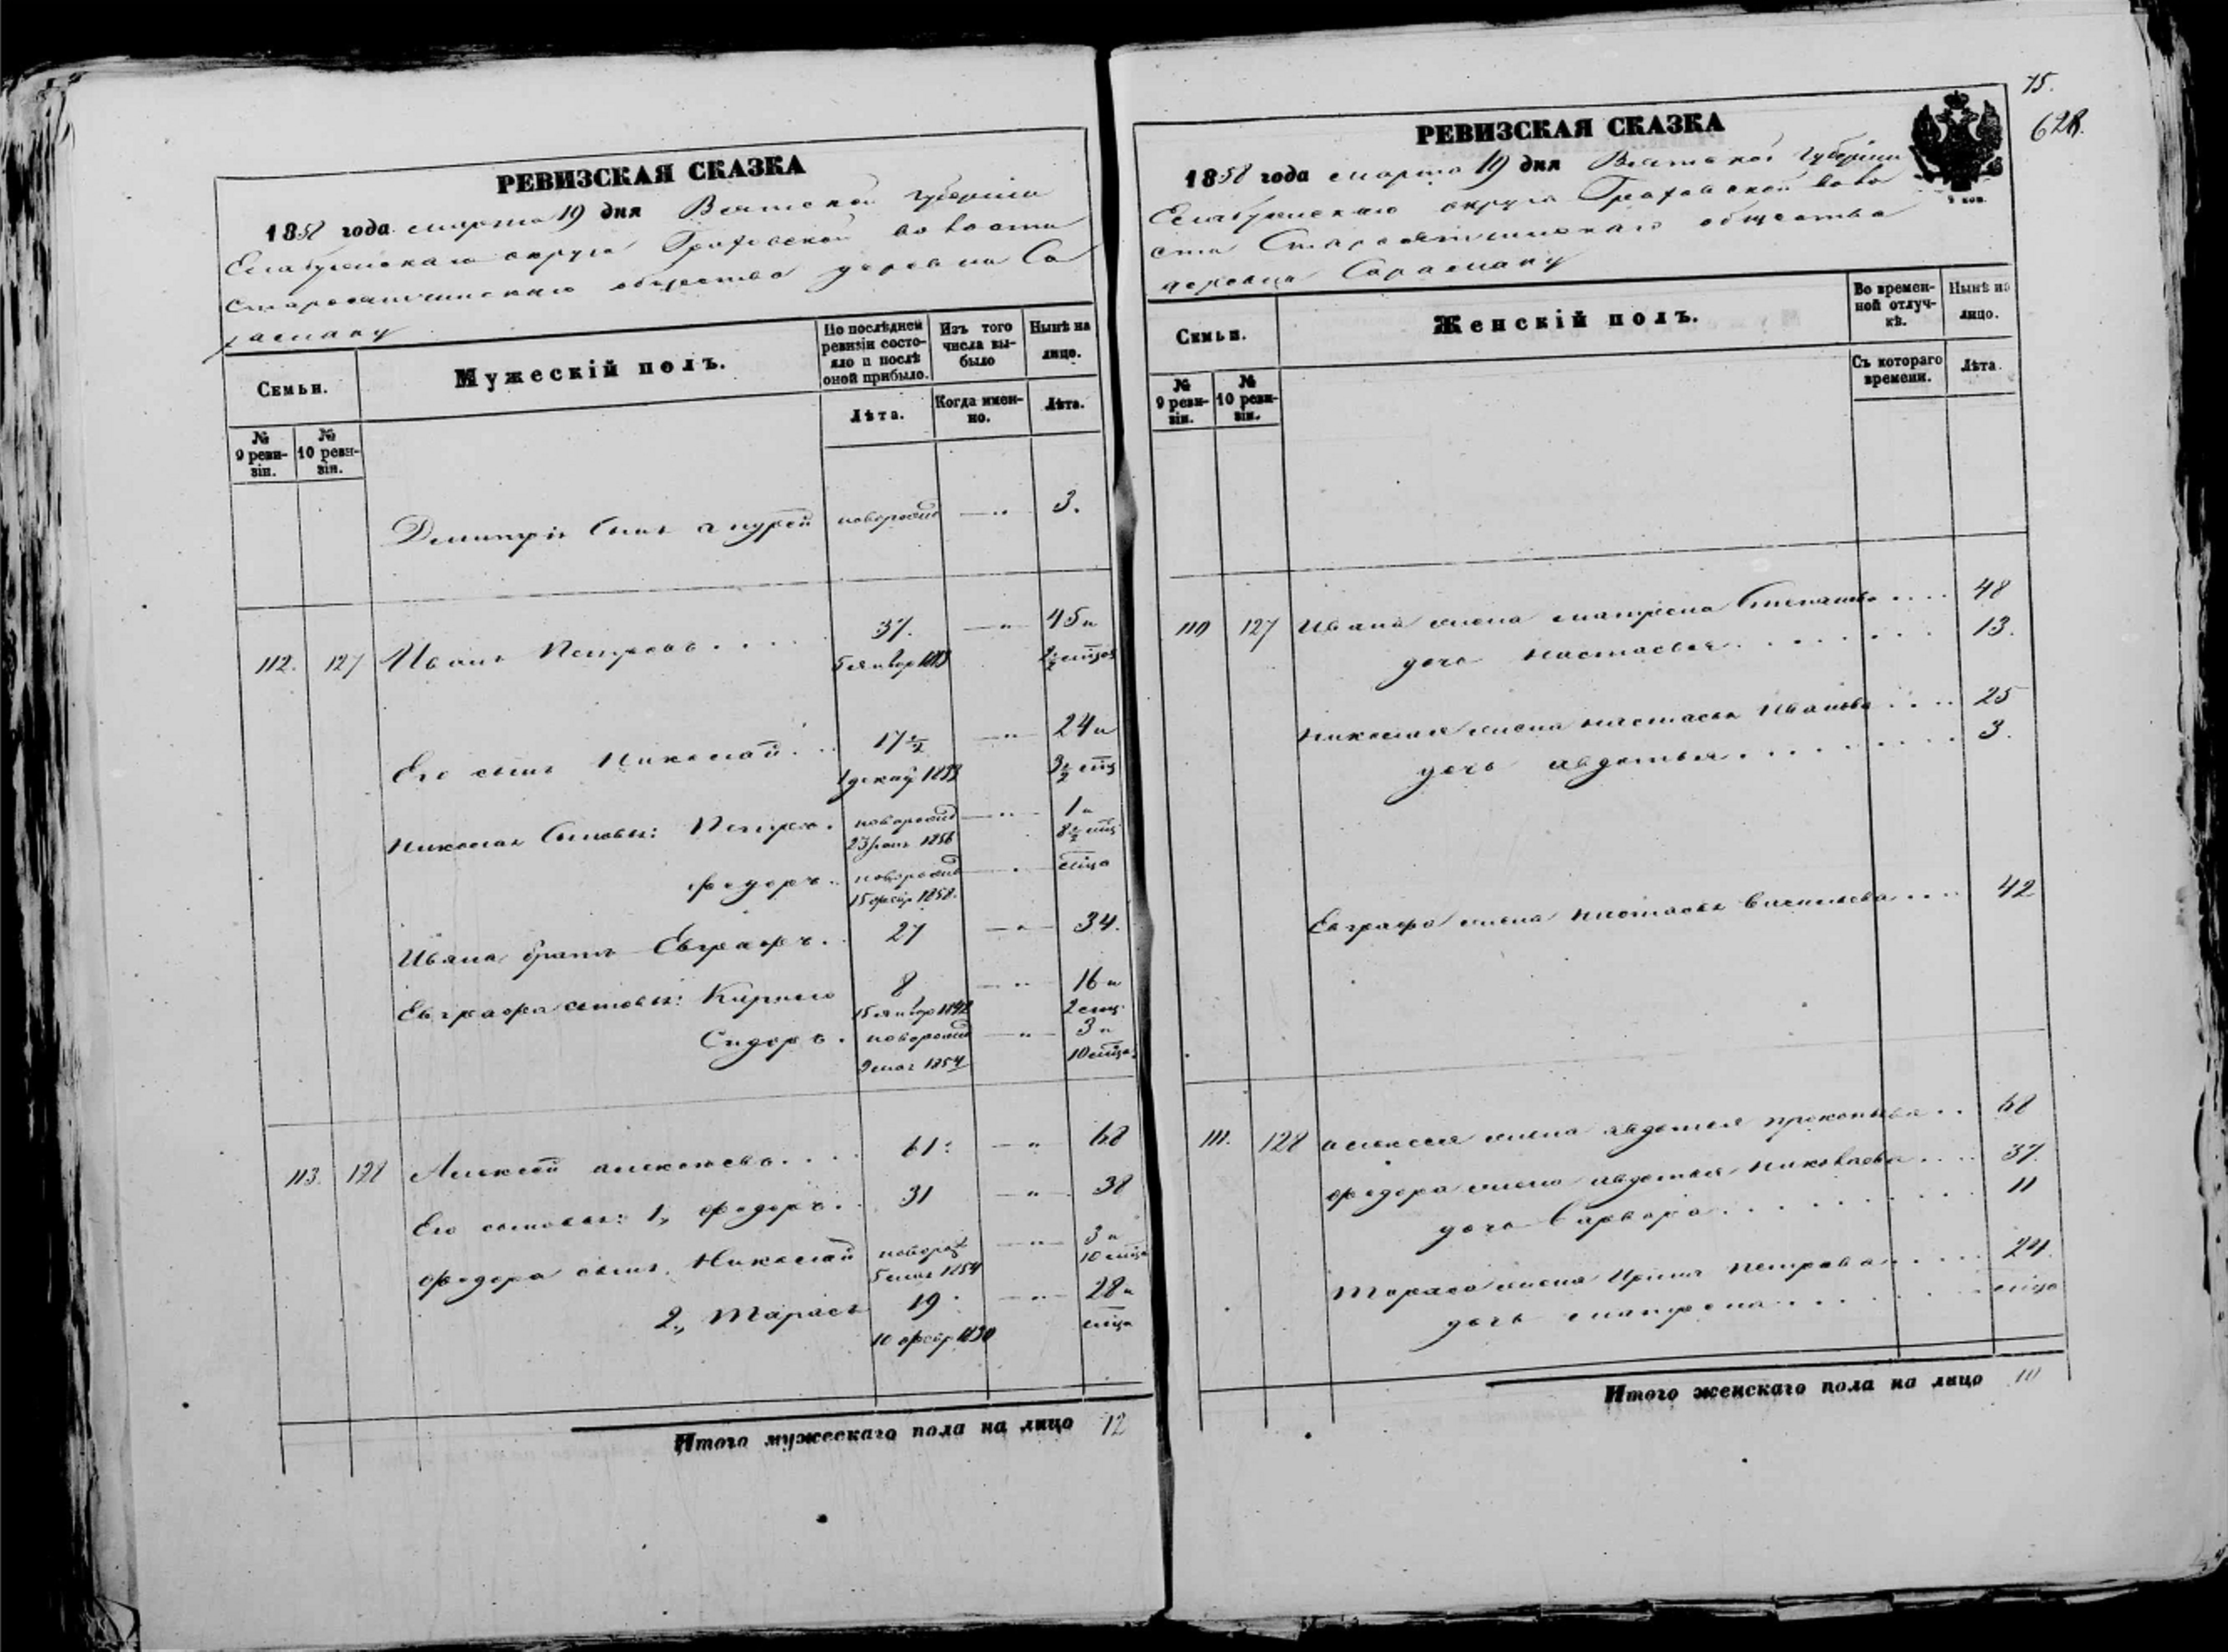 РЕВИЗСКАЯ СКАЗКА
1858 года марта 19 дня Вятской губернии
Елабужскаго округа Граховской волости
общества деревни Са
рамаку
Семьи.
Мужескій полъ.
По послѣдней ревизіи состояло и послѣ оной прибыло.
Изъ того числа выбыло
Нынѣ на лицо.
№ 9 ревизіи.
№ 10 ревизіи.
Лѣта.
Когда именно.
Лѣта.
Дмитрія сынъ Андрей новорожд 3.
112. 127 Иванъ Петровъ.... 37. 45 и
5 январ 1813 2½ мѣсяц
Его сынъ Николай... 17½ 24 и
1 декаб 1833 3½ мѣц
Николая Сыновья: Петръ. новорожд 1 и
1856 8½ мѣц
Федоръ.. новорожд мѣца
15 февр 1858.
Ивана братъ Евграфъ.. 27 34.
Евграфа сыновья: Кирило 8 16 и
15 январ 1842 2 мец.
Сидоръ. новорожд 3 и
9 мая 1854 10 мѣца
113. 128 Алексей Алексеевъ.... 61: 68
Его сыновья: 1, Федоръ.. 31 38
Федора сынъ. Николай новорож 3 и
5 мая 1854 10 мѣца
2., Тарасъ 19. 28 и
10 февр 1830 мѣца
Итого мужескаго пола на лицо 12
75.
628.
РЕВИЗСКАЯ СКАЗКА
1858 года марта 19 дня Вятской губерніи
Елабужскаго округа Граховской воло
сти общества
деревни Сарамаку
Семьи.
Женскій полъ.
Во временной отлучкѣ.
Нынѣ на лицо.
№ 9 ревизіи.
№ 10 ревизіи.
Съ котораго времени.
Лѣта.
110 127 Ивана жена Матрена Степанова.... 48
дочь Настасья........ 13.
Николая жена Настасья Иванова.... 25
дочь Авдотья......... 3.
Евграфа жена Настасья Васильева.... 42
111. 128 Алексея жена Авдотья Прокопьева... 68
Федора жена Авдотья Николаева.... 37.
дочь Варвара......... 11
Тараса жена Ирина Петрова..... 24.
дочь Матрена......... мѣца
Итого женскаго пола на лицо 10